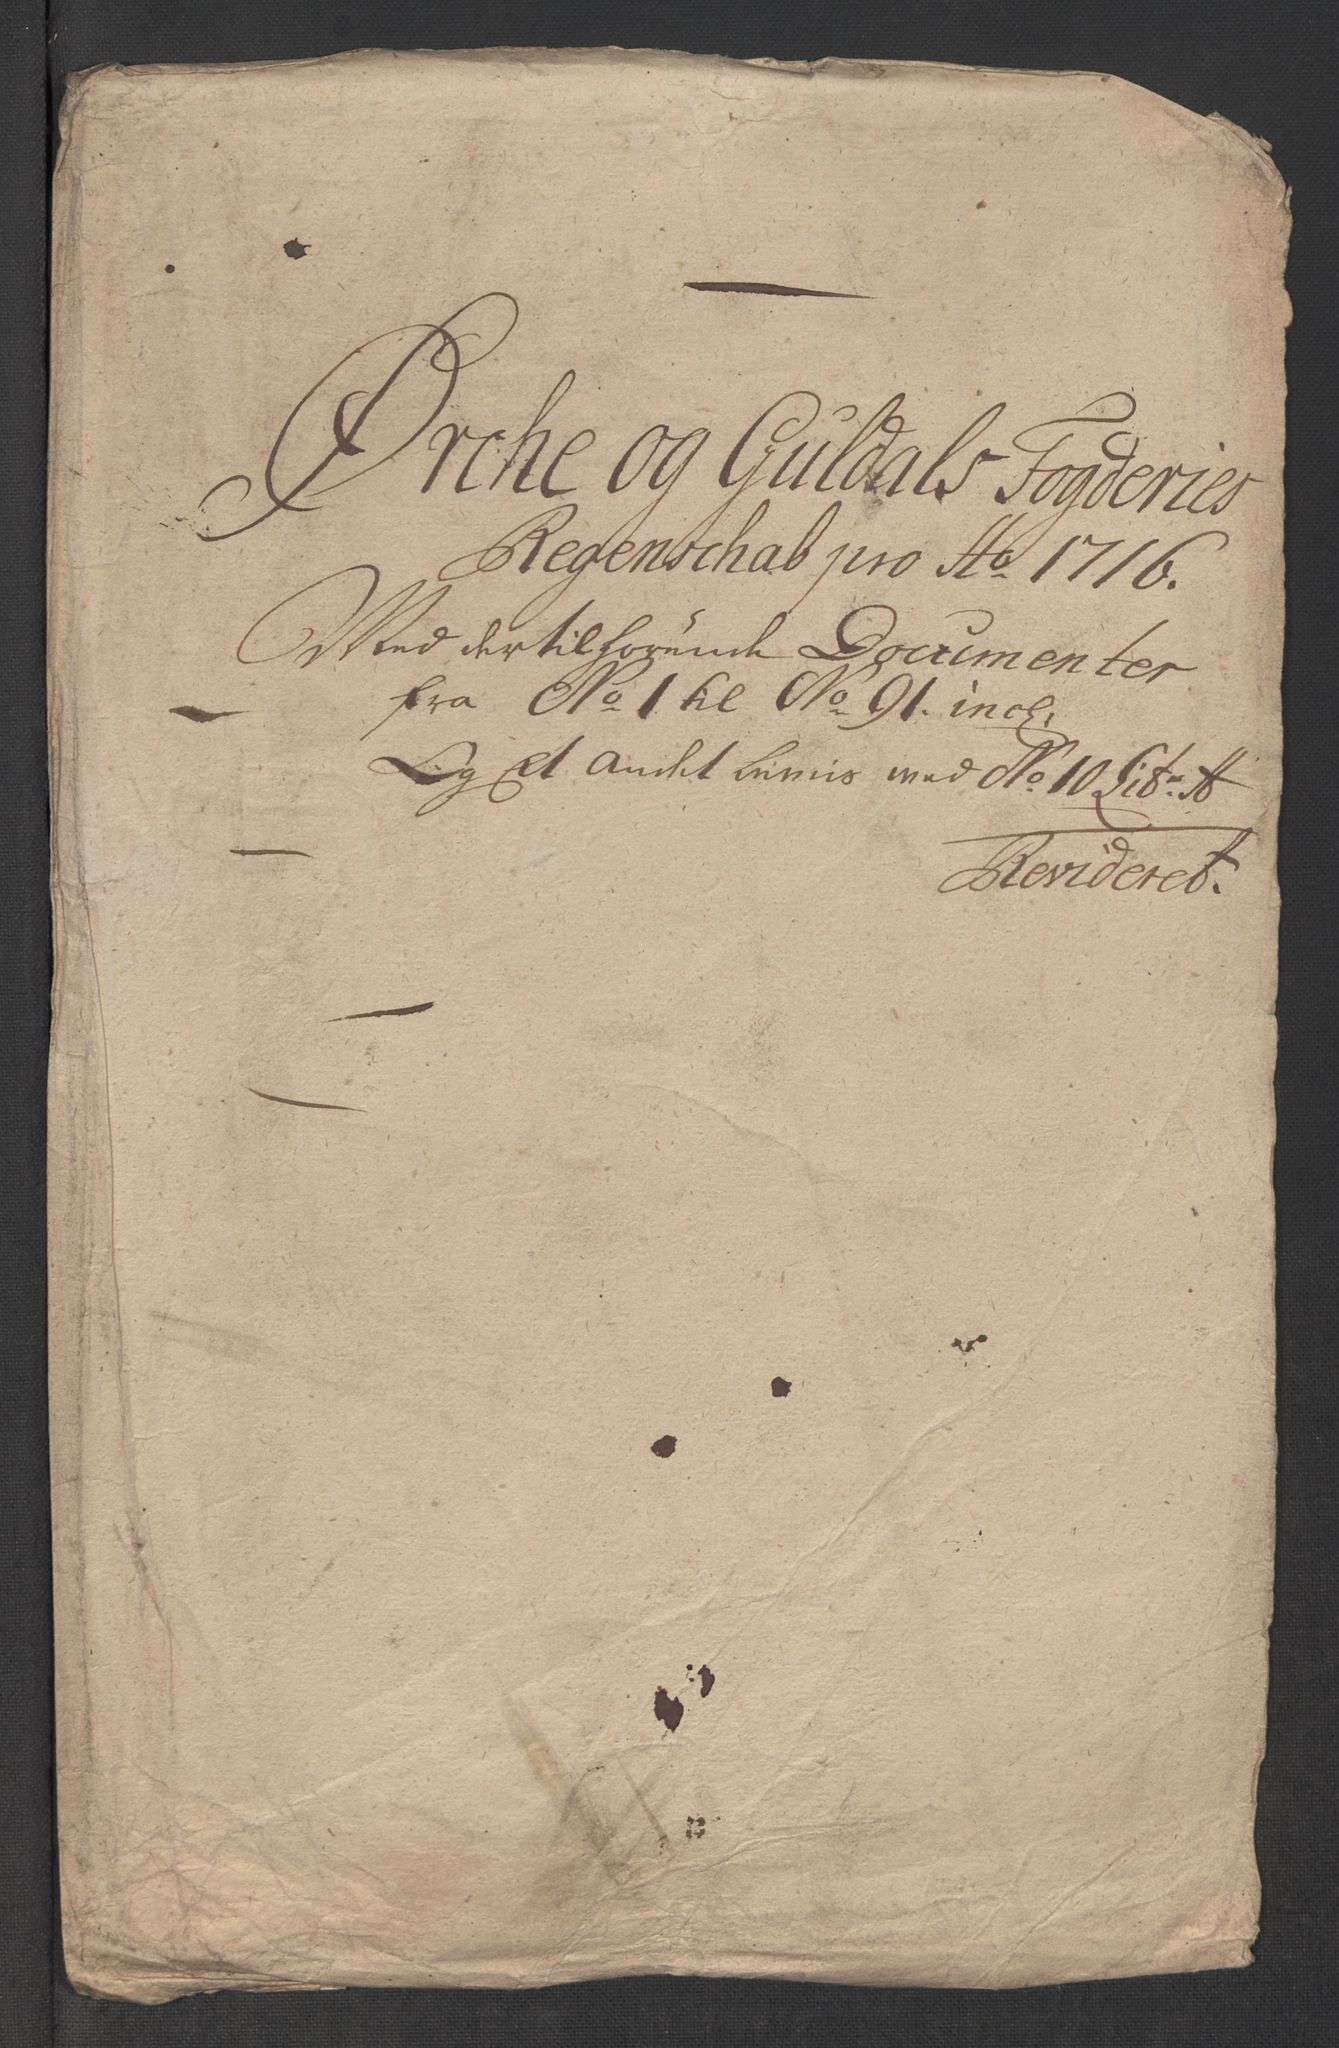 Ørche og Guldals Fogderies
Regenschab pro Ao 1716.
Med dertilhörende Documenter
fra No 1 til No 91. incl.
Og et andet bevis med No 10 Lit: A
Revideret.